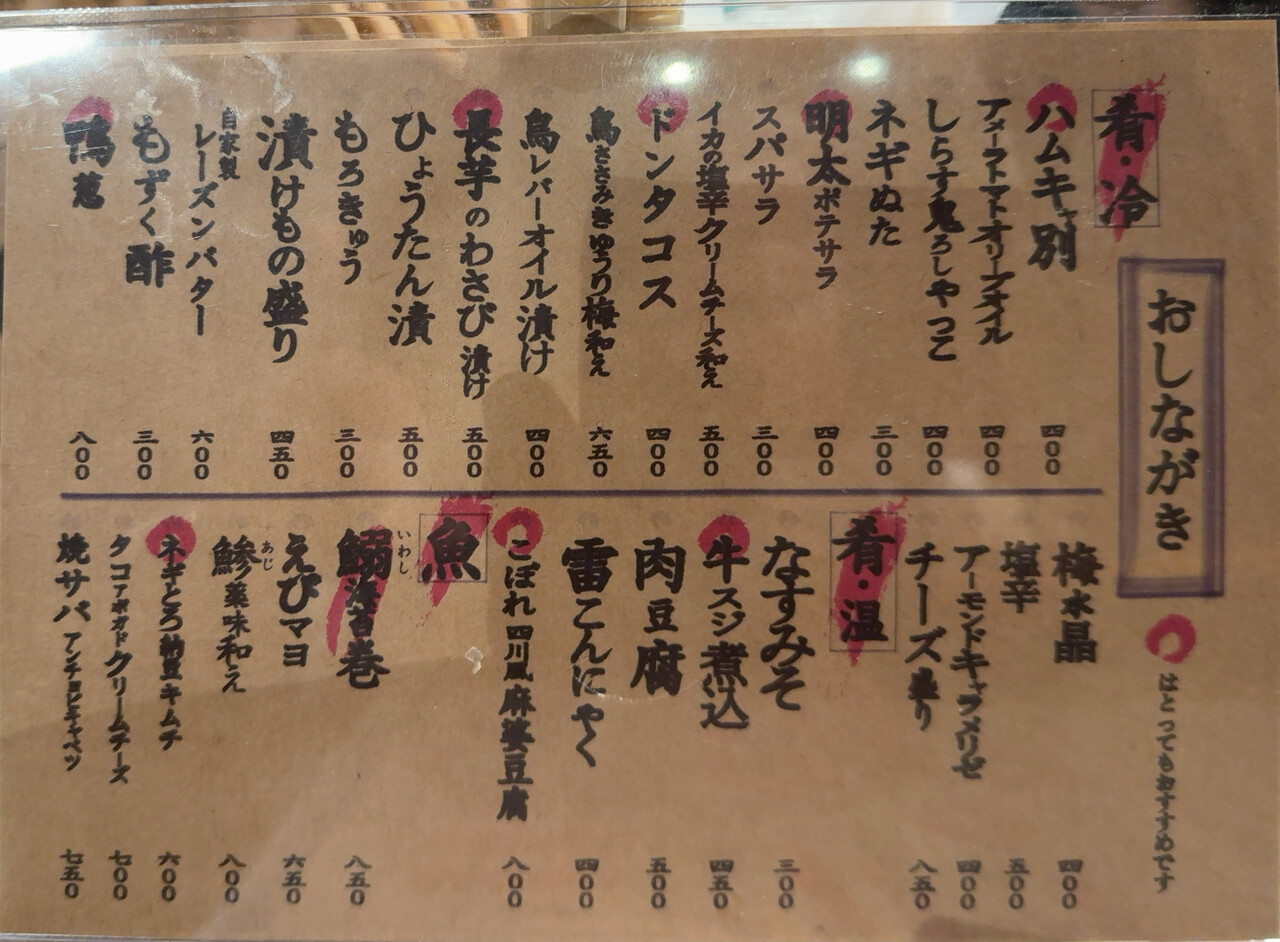 おしながき
はとってもおすすめです
肴・冷
ハムキャ別 四〇〇
アメーラトマトオリーブオイル 四〇〇
しらす鬼ろしやっこ 四〇〇
ネギぬた 三〇〇
明太ポテサラ 四〇〇
スパサラ 三〇〇
イカの塩辛クリームチーズ和え 五〇〇
ドンタコス 四〇〇
鳥ささみきゅうり梅和え 六五〇
鳥レバーオイル漬け 四〇〇
長芋のわさび漬け 五〇〇
ひょうたん漬 五〇〇
もろきゅう 三〇〇
漬けもの盛り 四五〇
自家製レーズンバター 六〇〇
もずく酢 三〇〇
鴨葱 八〇〇
梅水晶 四〇〇
塩辛 五〇〇
アーモンドキャラメリゼ 四〇〇
チーズ盛り 八五〇
肴・温
なすみそ 三〇〇
牛スジ煮込 四五〇
肉豆腐 五〇〇
雷こんにゃく 四〇〇
こぼれ四川風麻婆豆腐 八〇〇
魚
いわし
鰯海苔巻 八五〇
えびマヨ 六五〇
あじ
鰺薬味和え 八〇〇
ネギとろ納豆キムチ 六〇〇
タコアボカドクリームチーズ 七〇〇
焼サバアンチョビキャベツ 七五〇